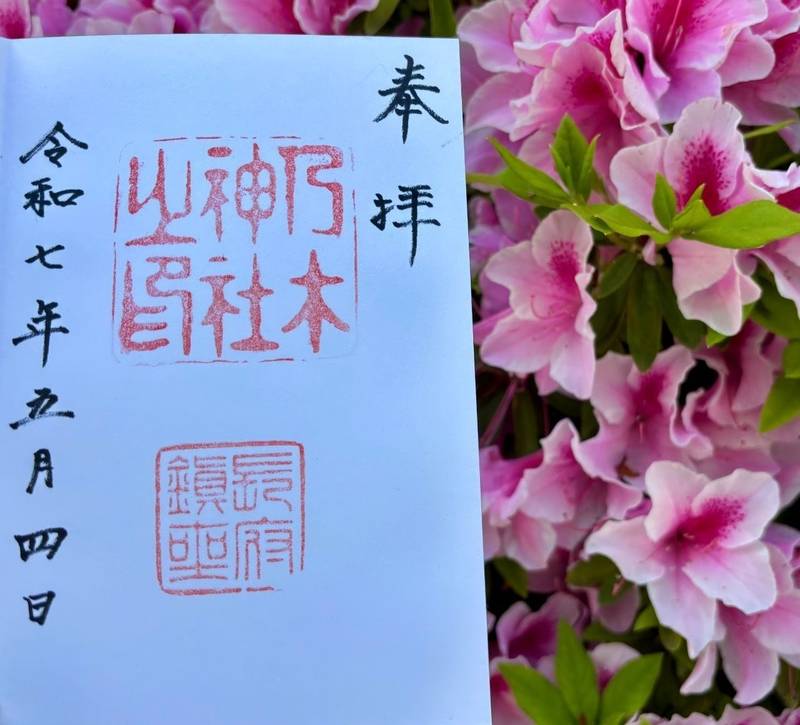 奉拝
乃木
神社
之印
長府
鎮座
令和七年五月四日